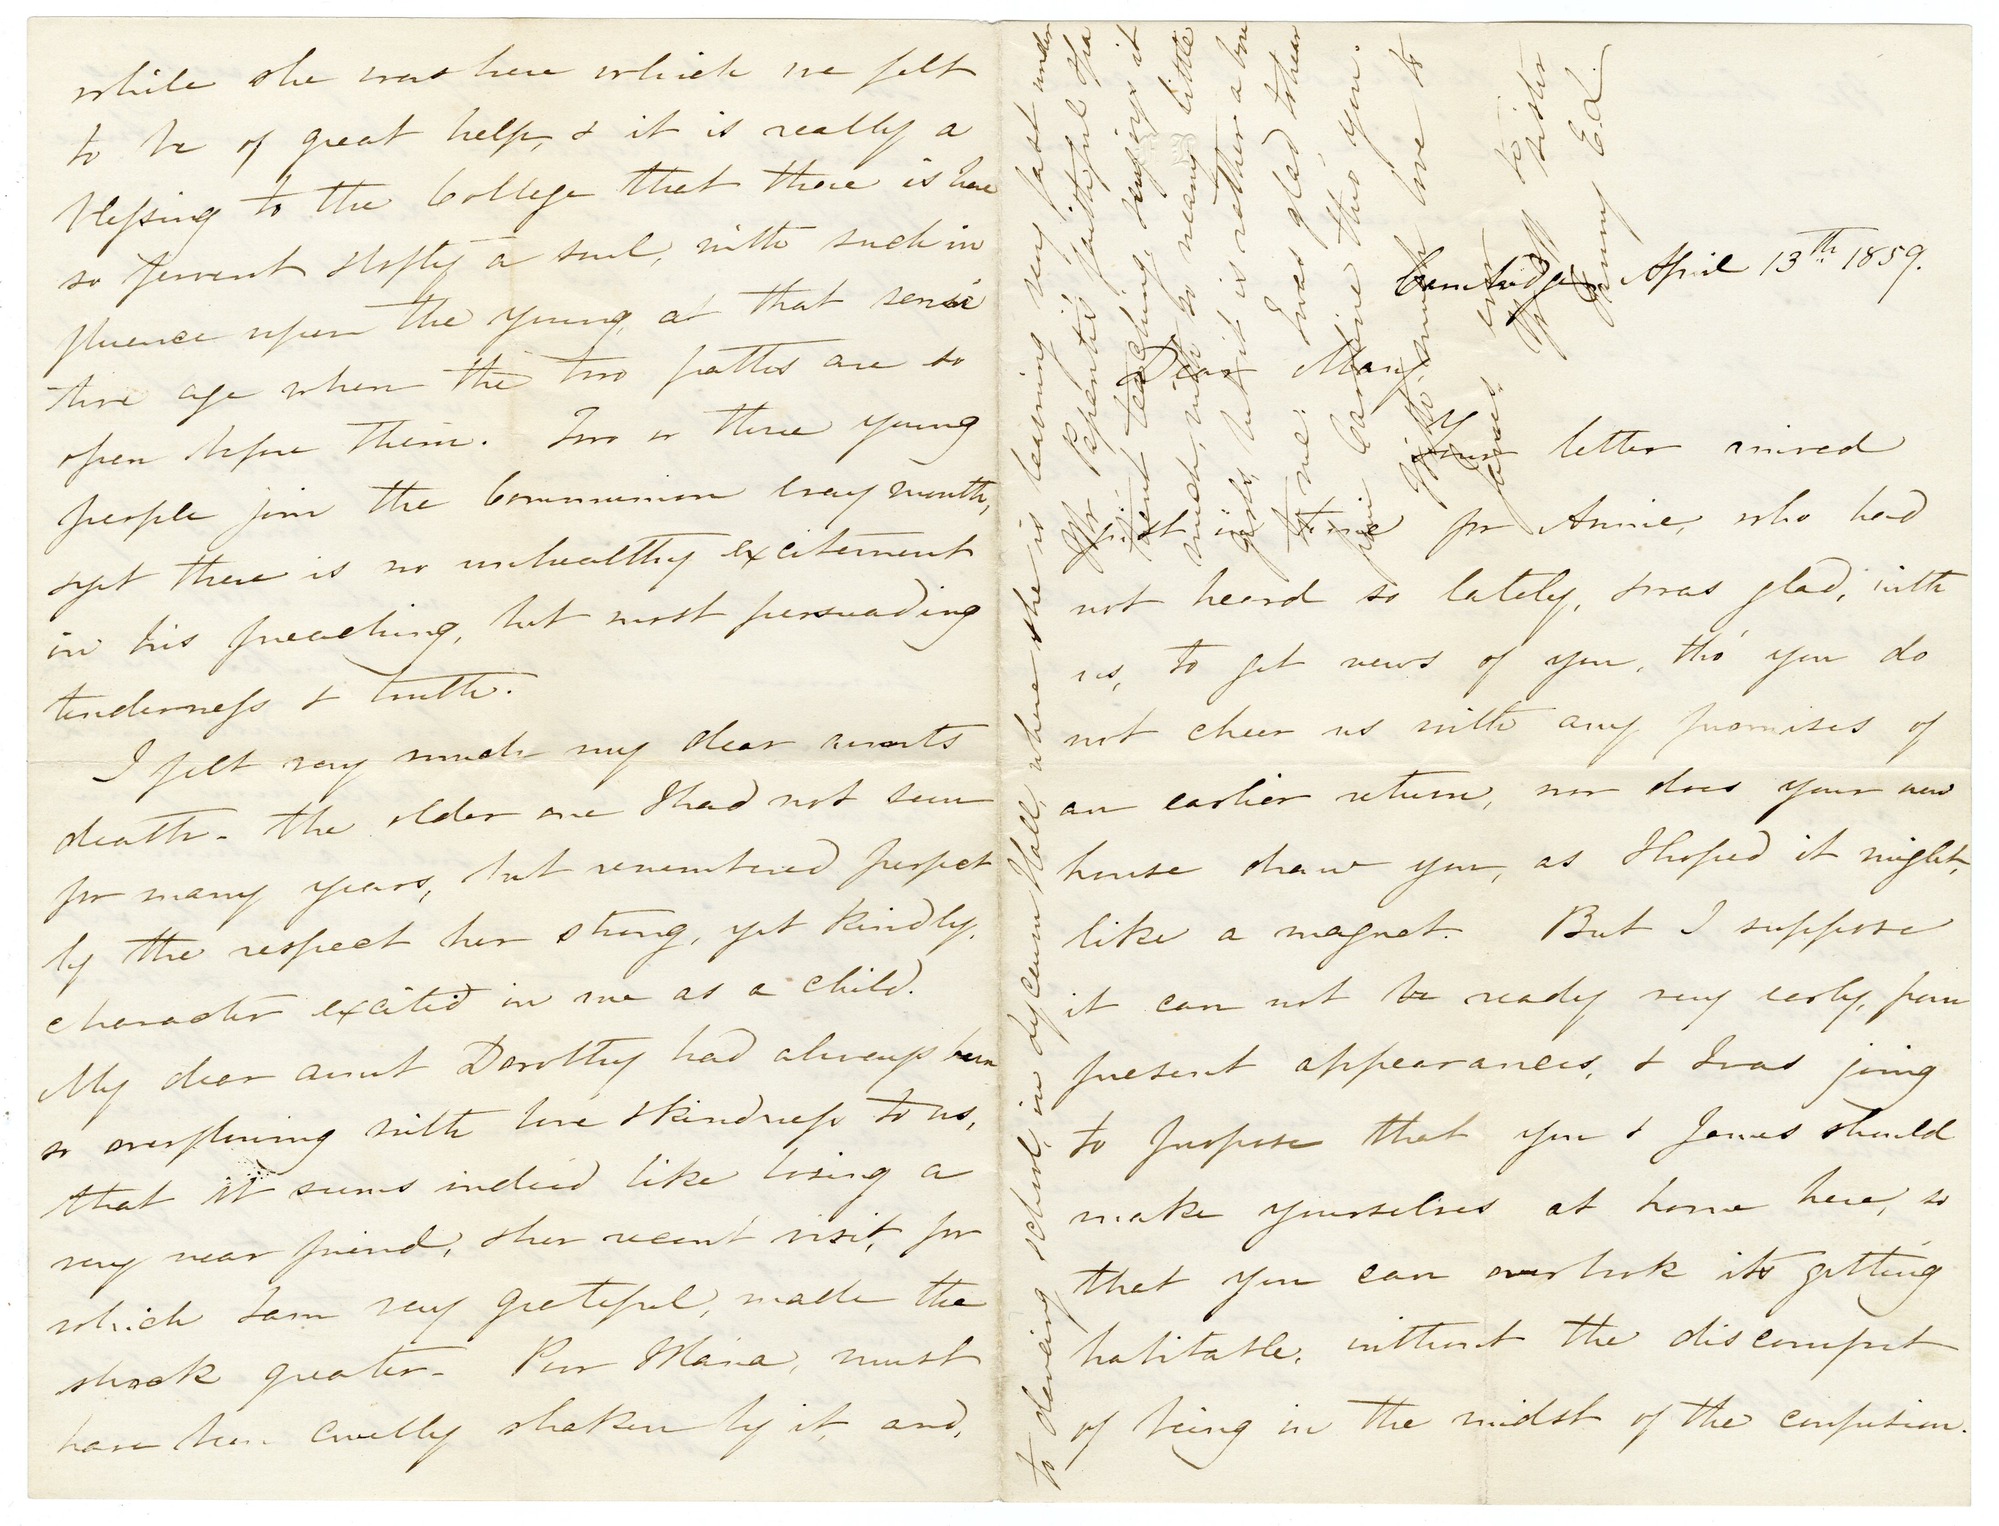 Cambridge April 13th 1859.
Dear Mary,
Your letter arrived
just in time for Annie, who had
not heard so lately, & was glad, with
us, to get news of you, tho' you do
not cheer us with any promises of
an earlier return, nor does your new
house draw you, as I hoped it might,
like a magnet. But I suppose
it can not be ready very early, from
present appearances, & I was going
to propose that you & James should
make yourselves at home here, so
that you can overlook its getting
habitable, without the discomfort
of being in the midst of the confusion.
while she was here which we felt
to be of great help, & it is really a
blessing to the College that there is here
so fervent & lofty a soul, with such in
fluence upon the young, at that sensi
tive age when the two paths are so
open before them. Two or three young
people join the Communion every month,
& yet there is no unhealthy excitement
in his preaching, but most persuading
tenderness & truth.
I felt very much my dear aunts
death - the older one I had not seen
for many years, but remembered perfect
ly the respect her strong, yet kindly,
character excited in me as a child.
My dear aunt Dorothy had always been
so overflowing with love & kindness to us,
that it seems indeed like losing a
very near friend, & her recent visit, for
which I am very grateful, made the
shock greater - Poor Maria, must
have been cruelly shaken by it, and,
to dancing school, in Lyceum Hall, where she is learning very fast under
Mr Papanti's faithful & pa
tient teaching, & enjoys it
much, with so many little
girls, but it is rather a bore
to me. I was glad to hear
from Caroline thro' you.
With much love to
James
Yr aff sister
Fanny E.L.